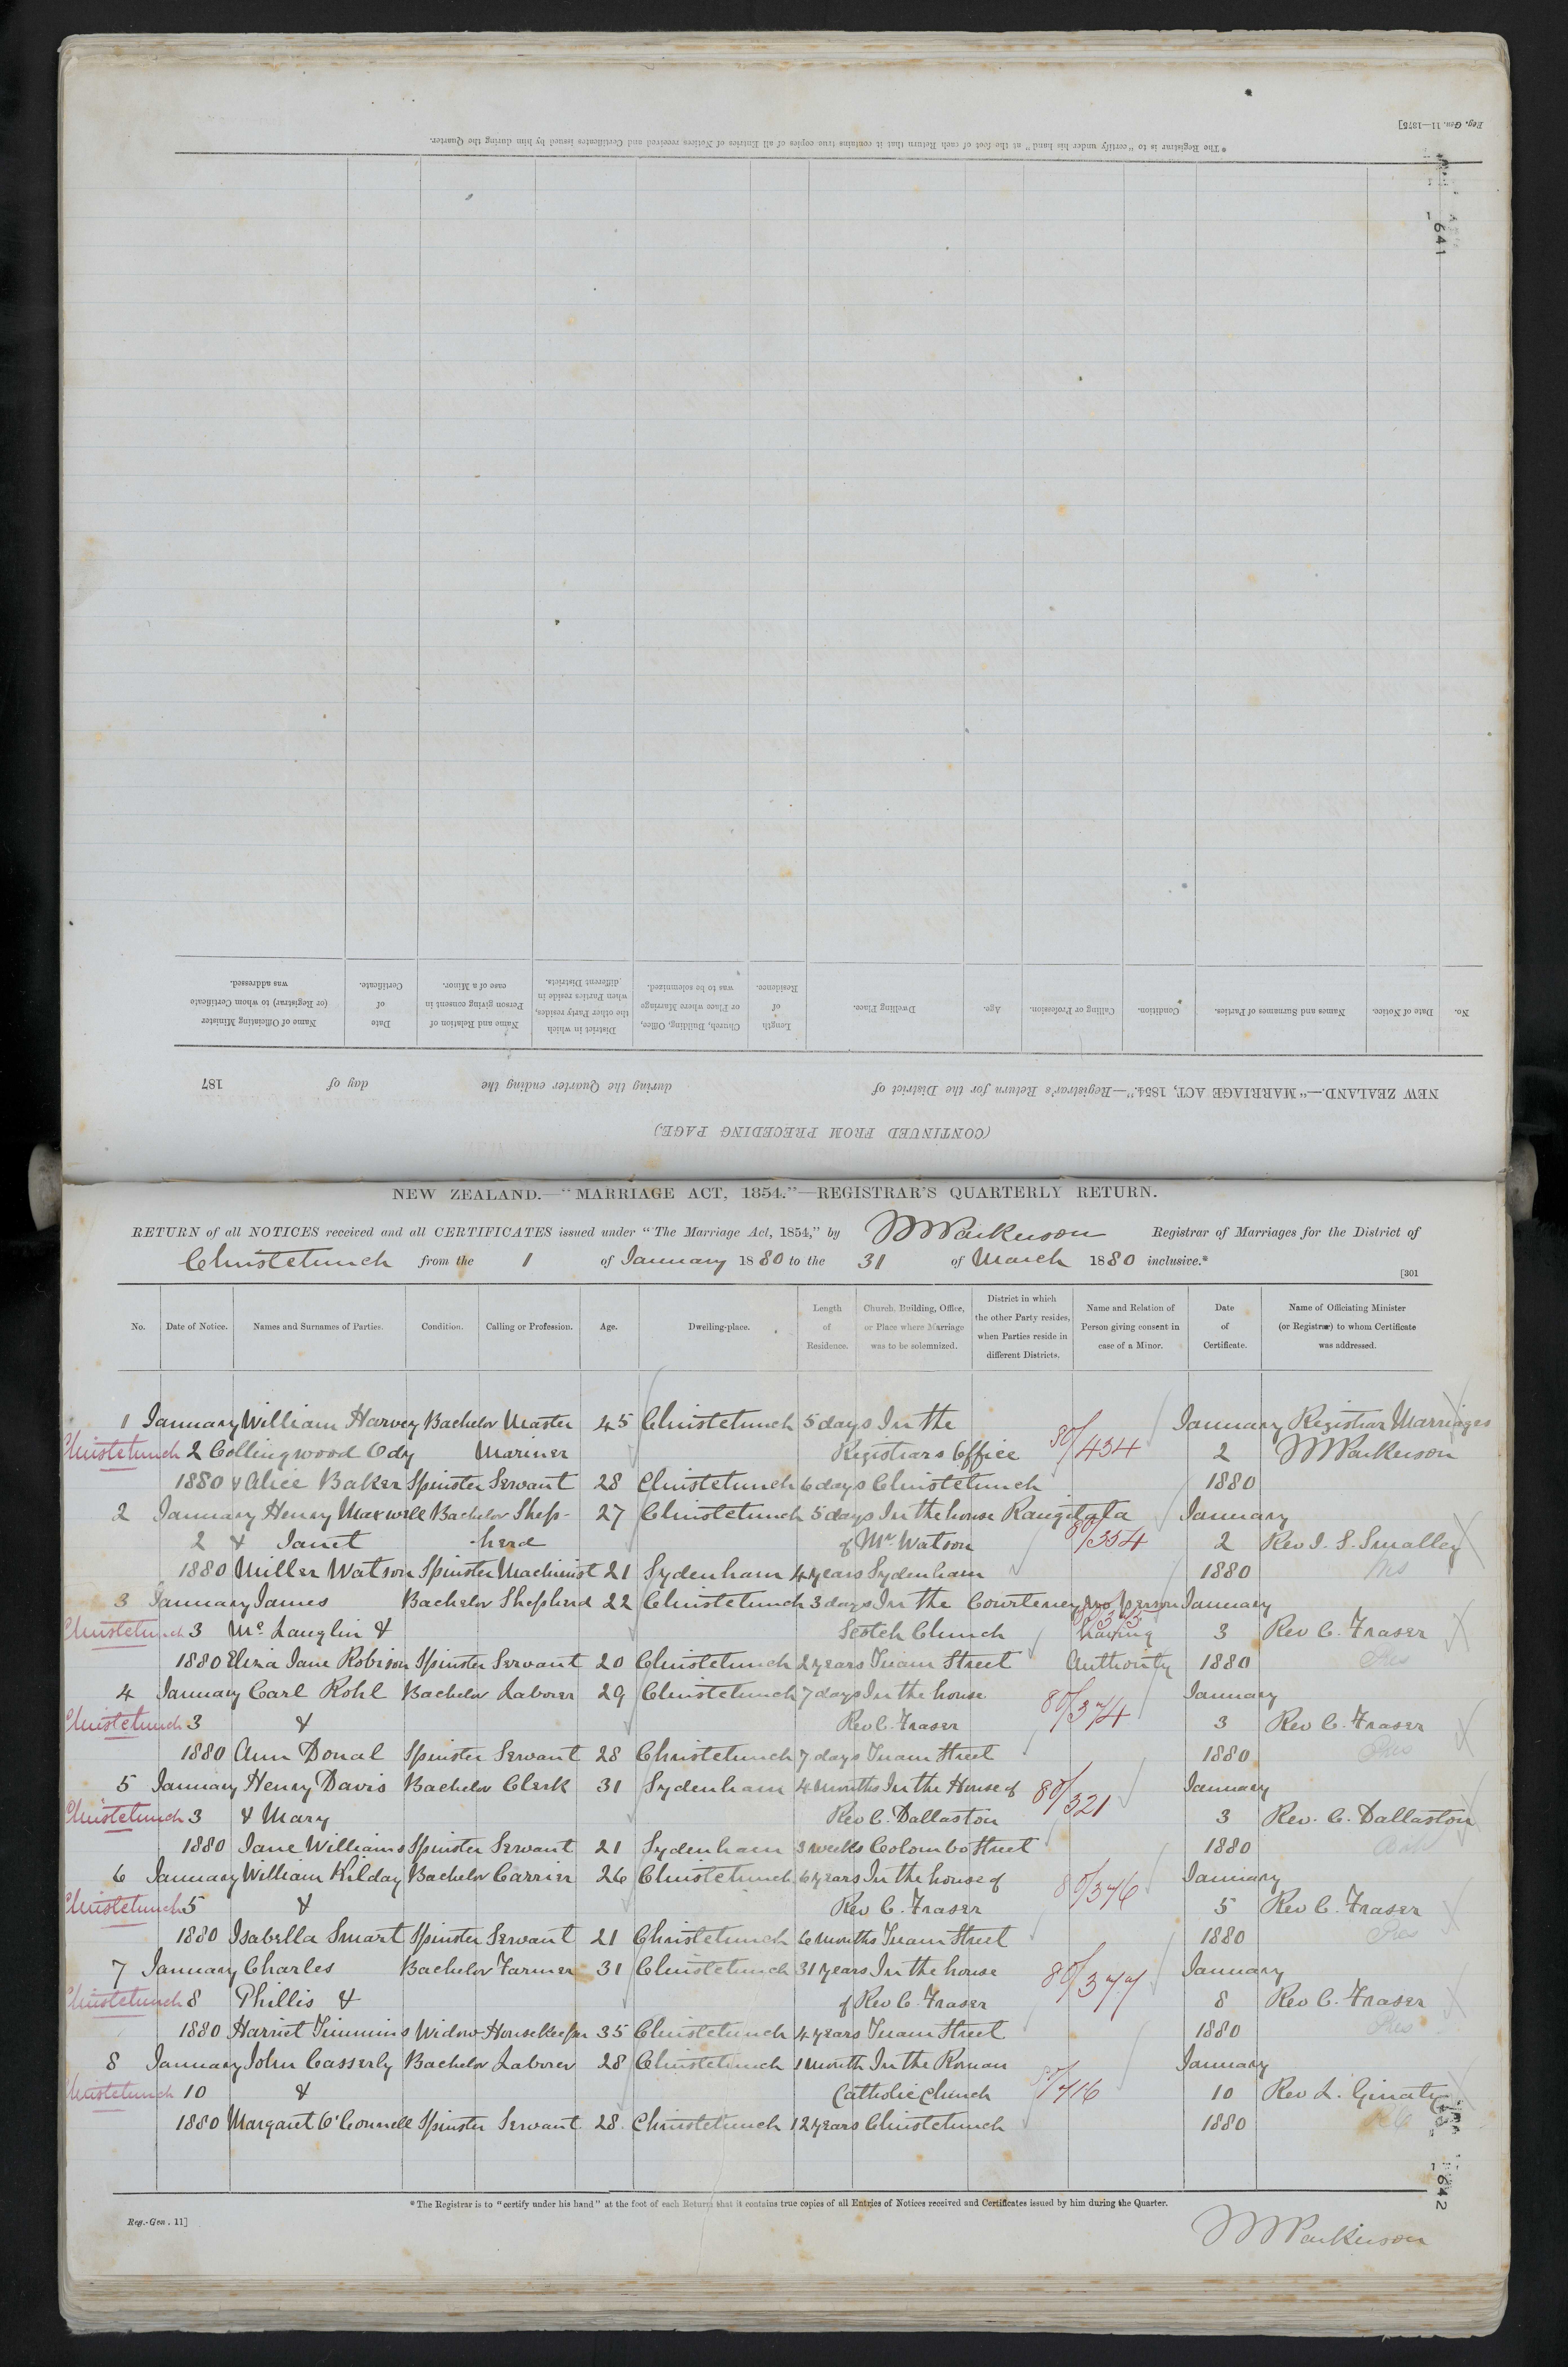 Reg. Gen. 11—1875]
* The Registrar is to "certify under his hand" at the foot of each Return that it contains true copies of all Entries of Notices received and Certificates issued by him during the Quarter.
641
No. Date of Notice. Names and Surnames of Parties. Condition. Calling or Profession. Age. Dwelling Place. Length of Residence. Church, Building, Office, or Place where Marriage was to be solemnized. District in which the other Party resides, when Parties reside in different Districts. Name and Relation of Person giving consent in case of a Minor. Date of Certificate. Name of Officiating Minister (or Registrar) to whom Certificate was addressed.
NEW ZEALAND.—"MARRIAGE ACT, 1854."—Registrar's Return for the District of during the Quarter ending the day of 187
(CONTINUED FROM PRECEDING PAGE)
NEW ZEALAND.—"MARRIAGE ACT, 1854."—REGISTRAR'S QUARTERLY RETURN.
RETURN of all NOTICES received and all CERTIFICATES issued under "The Marriage Act, 1854," by Parkerson Registrar of Marriages for the District of
Christchurch from the 1 of January 1880 to the 31 of March 1880 inclusive.*
[301
No. Date of Notice. Names and Surnames of Parties. Condition. Calling or Profession. Age. Dwelling-place. Length of Residence. Church, Building, Office, or Place where Marriage was to be solemnized. District in which the other Party resides, when Parties reside in different Districts. Name and Relation of Person giving consent in case of a Minor. Date of Certificate. Name of Officiating Minister (or Registrar) to whom Certificate was addressed.
1 January William Harvey Bachelor Master 45 Christchurch 5 days In the January Registrar Marriages
Christchurch 2 Collingwood Ody Mariner Registrars Office 80/434 2 Parkerson
1880 & Alice Baker Spinster Servant 28 Christchurch 6 days Christchurch 1880
2 January Henry Maxwell Bachelor Shep- 27 Christchurch 5 days In the house Rangitata January
2 & Janet -herd of Mr. Watson 80/354 2 Rev J. S. Smalley
1880 Miller Watson Spinster Machinist 21 Sydenham 4 years Sydenham 1880
3 January James Bachelor Shepherd 22 Christchurch 3 days In the Courteney no person January
Christchurch 3 Mc Lauglin & Scotch Church having 3 Rev C. Fraser
1880 Eliza Jane Robison Spinster Servant 20 Christchurch 2 years Tuam Street Authority 1880 Pres
4 January Carl Rohl Bachelor Laborer 29 Christchurch 7 days In the house January
Christchurch 3 & Rev C. Fraser 80/374 3 Rev C. Fraser
1880 Ann Donal Spinster Servant 28 Christchurch 7 days Tuam Street 1880 Pres
5 January Henry Davis Bachelor Clerk 31 Sydenham 4 months In the House of January
Christchurch 3 & Mary Rev C. Dallaston 80/321 3 Rev. C. Dallaston
1880 Jane Williams Spinster Servant 21 Sydenham 3 weeks Colombo Street 1880
6 January William Kilday Bachelor Carrier 26 Christchurch 6 years In the house of January
Christchurch 5 & Rev C. Fraser 80/376 5 Rev C. Fraser
1880 Isabella Smart Spinster Servant 21 Christchurch 6 months Tuam Street 1880 Pres
7 January Charles Bachelor Farmer 31 Christchurch 31 years In the house January
Christchurch 8 Phillis & of Rev C. Fraser 80/377 8 Rev C. Fraser
1880 Harriet Timmins Widow Housekeeper 35 Christchurch 4 years Tuam Street 1880 Pres
8 January John Casserly Bachelor Laborer 28 Christchurch 1 month In the Roman January
Christchurch 10 & Catholic Church 80/416 10 Rev L. Ginaty
1880 Margaret O'Connell Spinster Servant 28 Christchurch 12 years Christchurch 1880 RC
642
* The Registrar is to "certify under his hand" at the foot of each Return that it contains true copies of all Entries of Notices received and Certificates issued by him during the Quarter.
Reg.-Gen. 11]
Parkerson